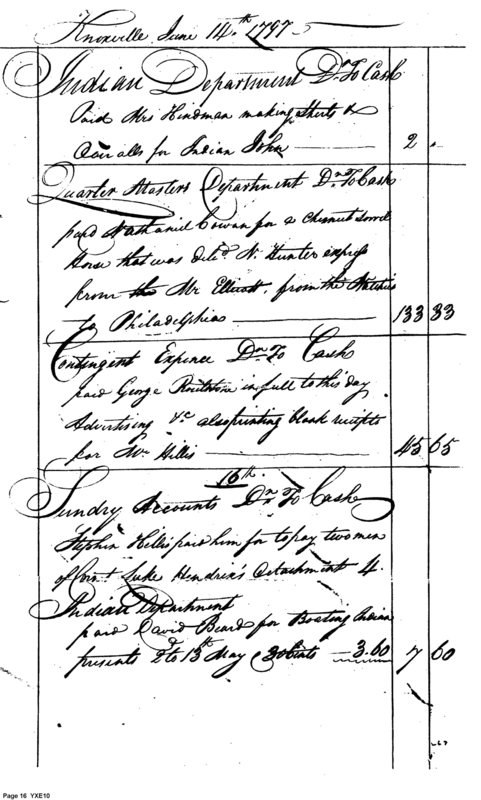 Knoxville June 14th 1797
Indian Department Dr. To Cash
Paid Mrs Hindman making shirts &
Overalls for Indian John 2 .
Quarter Masters Department Dr. To Cash
paid Nathaniel Cowan for a Chesnut Sorrel
Horse that was deld N. Hunter express
from the Mr Ellicott, from the Natchis
to Philadelphia 133 33
Contingent Expence Dr. To Cash
paid George Roulstone in full to this day
Advertising &c also printing blank receipts
for Mr Hillis 45 65
16th.
Sundry Accounts Dr. To Cash
Stephen Hillis paid him for to pay two men
of Luke Hendrix's Detachment 4.
Indian Department
paid David Beard for Boating Indian
presents 2d to 13th May 3.60 7 60
Page 16 YXE10